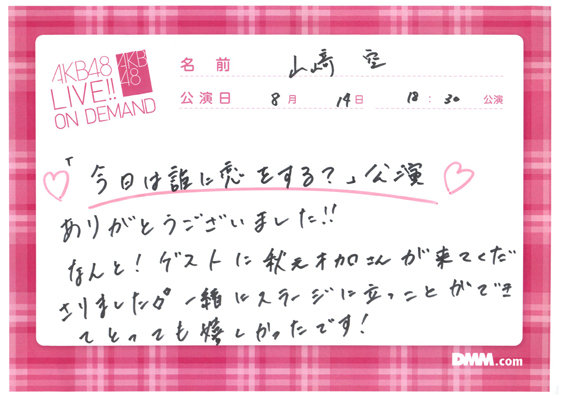 AKB48
LIVE!!
ON DEMAND
AKB
48
名前 山﨑 空
公演日 8月 14日 18:30 公演
「今日は誰に恋をする?」公演
ありがとうございました!!
なんと!ゲストに秋元才加さんが来てくだ
さりました 一緒にステージに立つことができ
てとっても嬉しかったです!
DMM.com